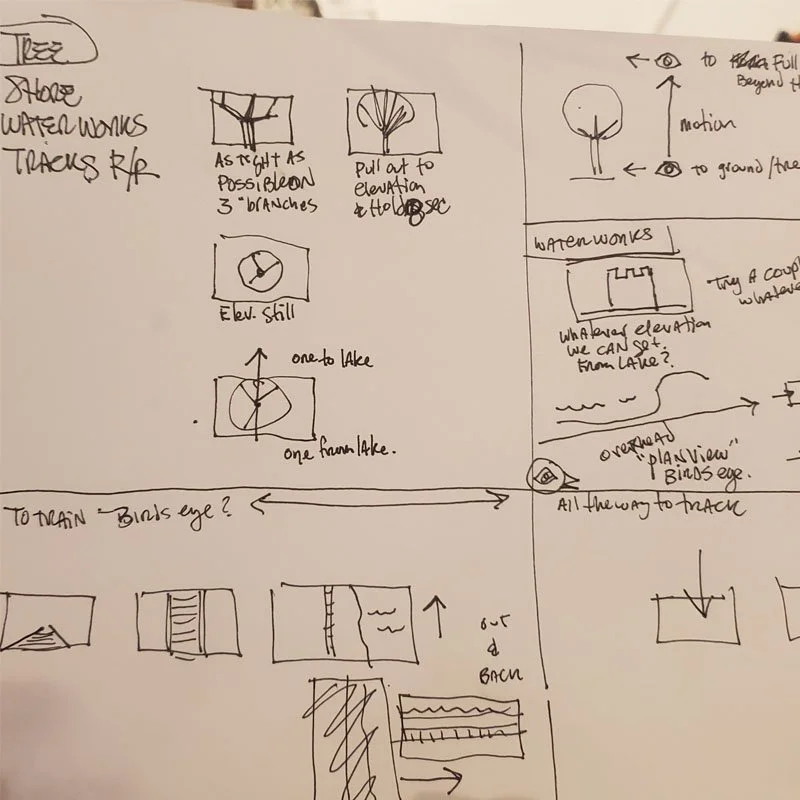 TREE
SHORE
WATERWORKS
TRACKS R/R
AS TIGHT AS
POSSIBLE ON
3 "BRANCHES
Pull out to
elevation
& Hold 8 sec
Elev. Still
one to lake
one from lake.
← to Full
Beyond
motion
← to ground/tree
WATERWORKS
Try A
whatever
whatever elevation
we CAN get.
From LAKE?
overhead
"PLAN VIEW"
BIRDS eye.
TO TRAIN "Birds eye?
All the way to TRACK
out
&
BACK